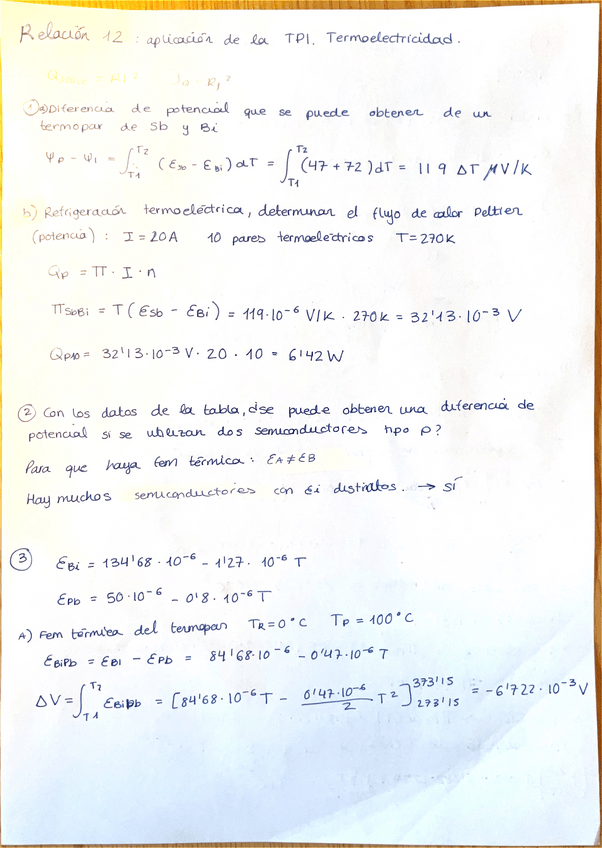 Relación 12 : aplicación de la TPI. Termoelectricidad.
① a) Diferencia de potencial que se puede obtener de un
termopar de Sb y Bi
Ψp - Ψ1 = ∫_{T1}^{T2} (εSb - εBi) dT = ∫_{T1}^{T2} (47 + 72) dT = 119 ΔT μV/K
b) Refrigeración termoeléctrica, determinar el flujo de calor Peltier
(potencia) : I = 20A 10 pares termoeléctricos T = 270K
Qp = Π · I · n
ΠSbBi = T(εSb - εBi) = 119·10⁻⁶ V/K · 270K = 32'13·10⁻³ V
Qp10 = 32'13·10⁻³ V · 20 · 10 = 6'42W
② Con los datos de la tabla, ¿se puede obtener una diferencia de
potencial si se utilizan dos semiconductores tipo p?
Para que haya fem térmica : εA ≠ εB
Hay muchos semiconductores con εi distintos. → sí
③ εBi = 134'68 · 10⁻⁶ - 1'27 · 10⁻⁶ T
εPb = 50·10⁻⁶ - 0'8·10⁻⁶ T
A) Fem térmica del termopar TR = 0°C Tp = 100°C
εBiPb = εBi - εPb = 84'68·10⁻⁶ - 0'47·10⁻⁶ T
ΔV = ∫_{T1}^{T2} εBiPb = [84'68·10⁻⁶ T - 0'47·10⁻⁶/2 T²]_{273'15}^{373'15} = -6'722·10⁻³ V